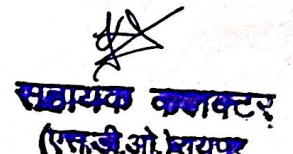 सहायक कलक्टर
(एस.डी.ओ.) रायपुर